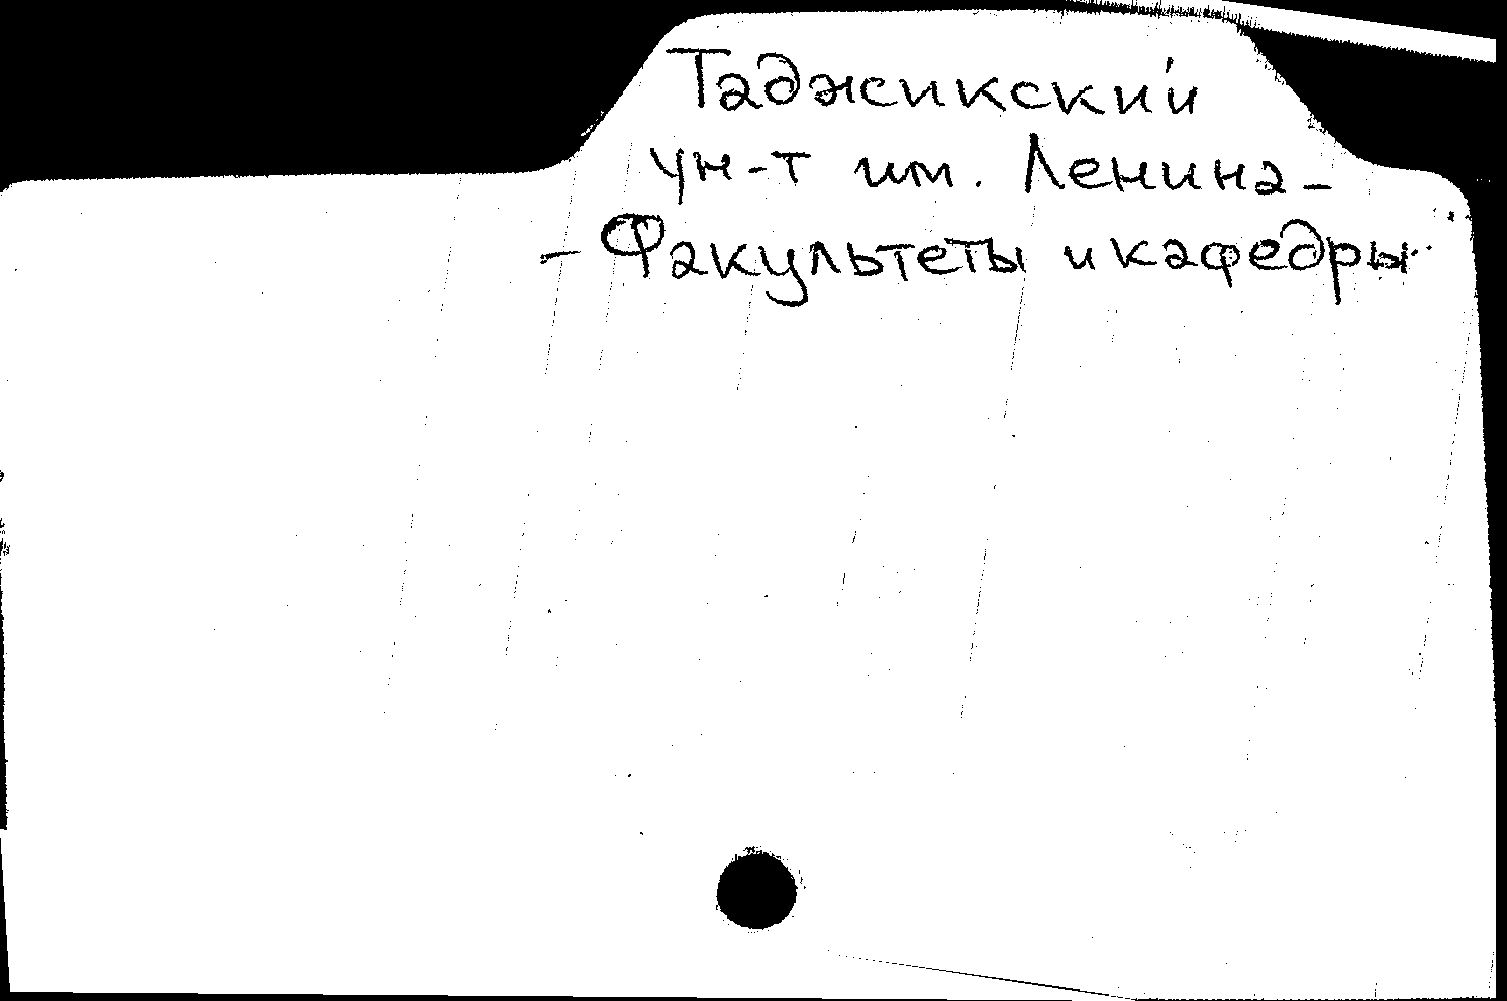 Таджикский
ун-т им. Ленина -
- Факультеты и кафедры